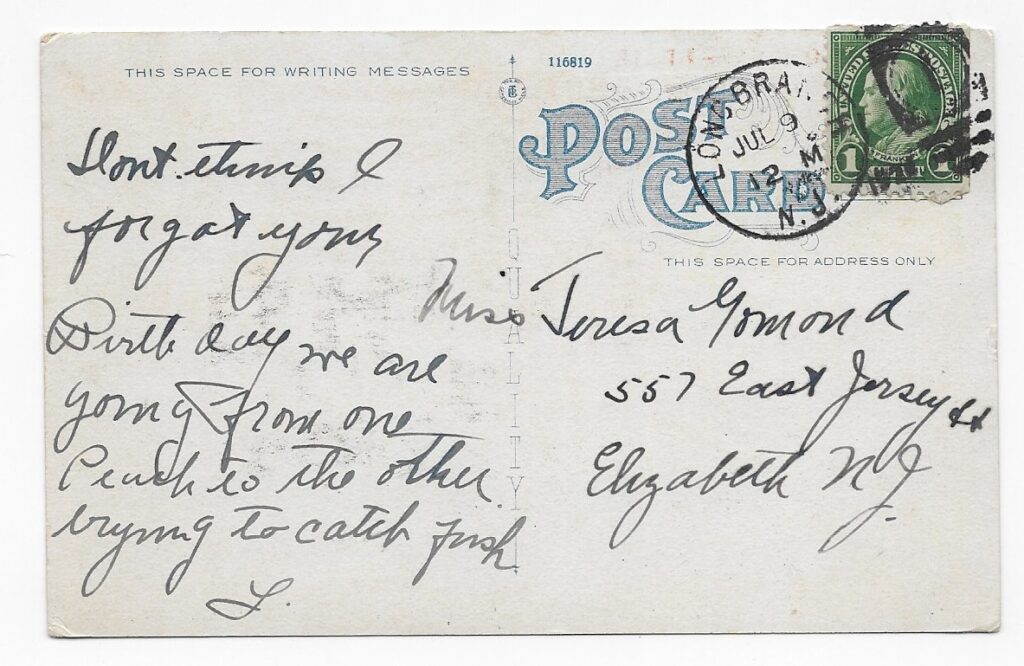 THIS SPACE FOR WRITING MESSAGES
Dont think I
forgot your
Birthday we are
going from one
Beach to the other
trying to catch fish
L.
QUALITY
116819
POST
CARD
LONG BRANCH
JUL 9
12 M
N.J.
UNITED STATES POSTAGE
FRANKLIN
1 CENT 1
THIS SPACE FOR ADDRESS ONLY
Miss Teresa Gomond
557 East Jersey st
Elizabeth N J.